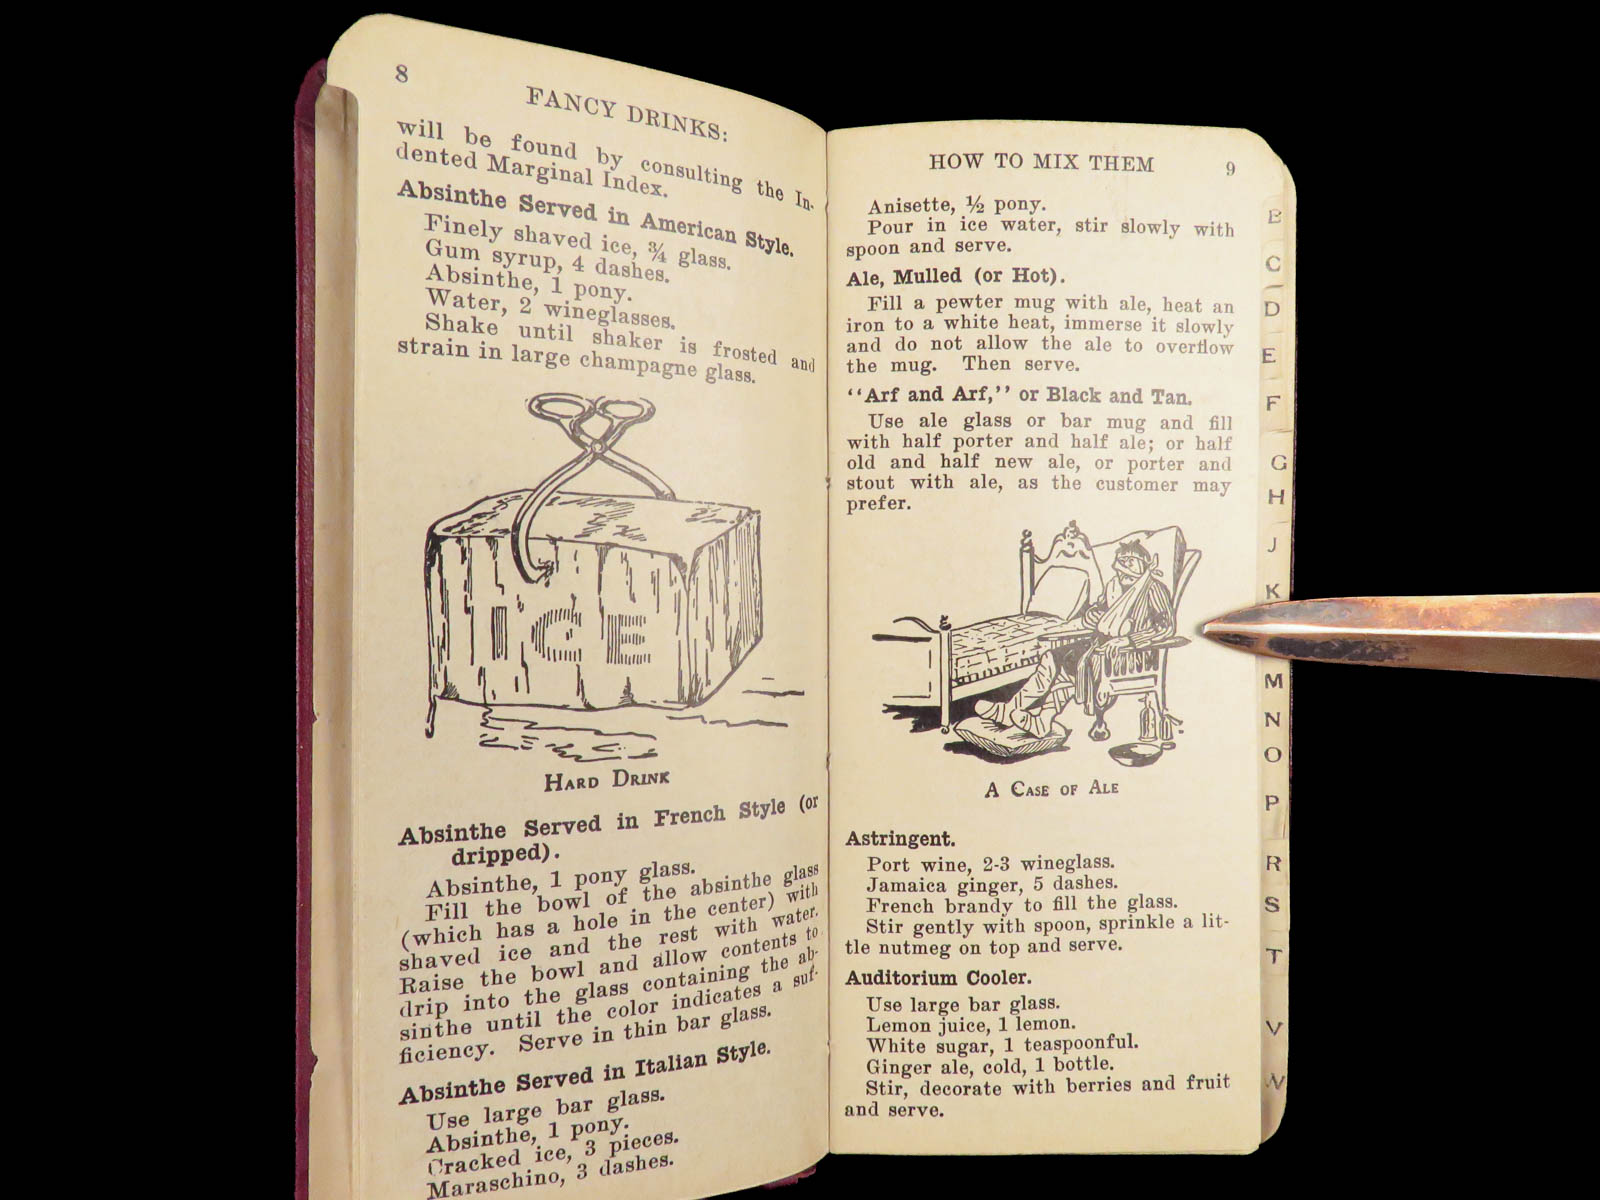 8
FANCY DRINKS:
will be found by consulting the In-
dented Marginal Index.
Absinthe Served in American Style.
Finely shaved ice, ¾ glass.
Gum syrup, 4 dashes.
Absinthe, 1 pony.
Water, 2 wineglasses.
Shake until shaker is frosted and
strain in large champagne glass.
ICE
HARD DRINK
Absinthe Served in French Style (or
dripped).
Absinthe, 1 pony glass.
Fill the bowl of the absinthe glass
(which has a hole in the center) with
shaved ice and the rest with water.
Raise the bowl and allow contents to
drip into the glass containing the ab-
sinthe until the color indicates a suf-
ficiency. Serve in thin bar glass.
Absinthe Served in Italian Style.
Use large bar glass.
Absinthe, 1 pony.
Cracked ice, 3 pieces.
Maraschino, 3 dashes.
HOW TO MIX THEM 9
Anisette, ½ pony.
Pour in ice water, stir slowly with
spoon and serve.
Ale, Mulled (or Hot).
Fill a pewter mug with ale, heat an
iron to a white heat, immerse it slowly
and do not allow the ale to overflow
the mug. Then serve.
"Arf and Arf," or Black and Tan.
Use ale glass or bar mug and fill
with half porter and half ale; or half
old and half new ale, or porter and
stout with ale, as the customer may
prefer.
A CASE OF ALE
Astringent.
Port wine, 2-3 wineglass.
Jamaica ginger, 5 dashes.
French brandy to fill the glass.
Stir gently with spoon, sprinkle a lit-
tle nutmeg on top and serve.
Auditorium Cooler.
Use large bar glass.
Lemon juice, 1 lemon.
White sugar, 1 teaspoonful.
Ginger ale, cold, 1 bottle.
Stir, decorate with berries and fruit
and serve.
B
C
D
E
F
G
H
J
K
M
N
O
P
R
S
T
V
W